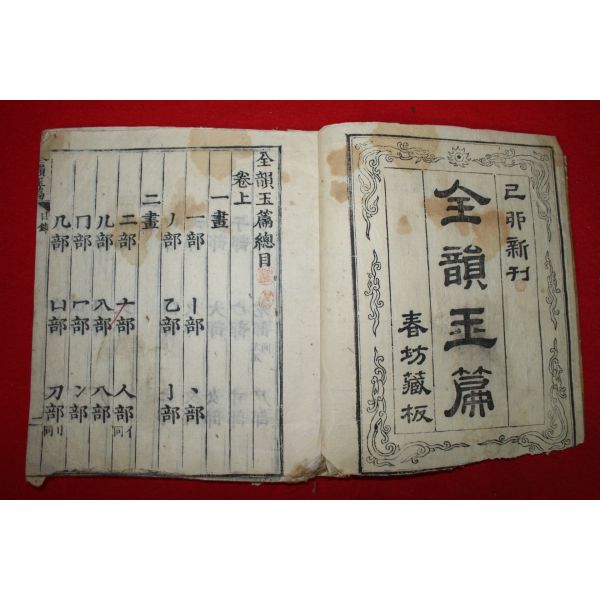 己卯新刊
全韻玉篇
春坊藏板
全韻玉篇總目
卷上
一畫
一部 丨部 丶部
丿部 乙部 亅部
二畫
二部 亠部 人部 亻同
儿部 入部 八部
冂部 冖部 冫部
几部 凵部 刀部 刂同